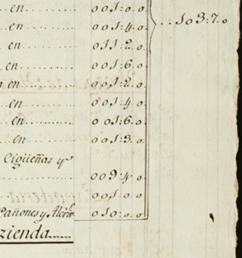 en ........ 001:0.0
en ........ 001:4.0
en ........ 011:2.0
en ........ 001:6.0
en ........ 001:2.0
en ........ 001:4.0
en ........ 001:6.0
en ........ 001:3.0
Cigüeñas y
........ 009:4.0
........ 001:0.0
Cañones y ........ 010:0.0
zienda
103:7.0